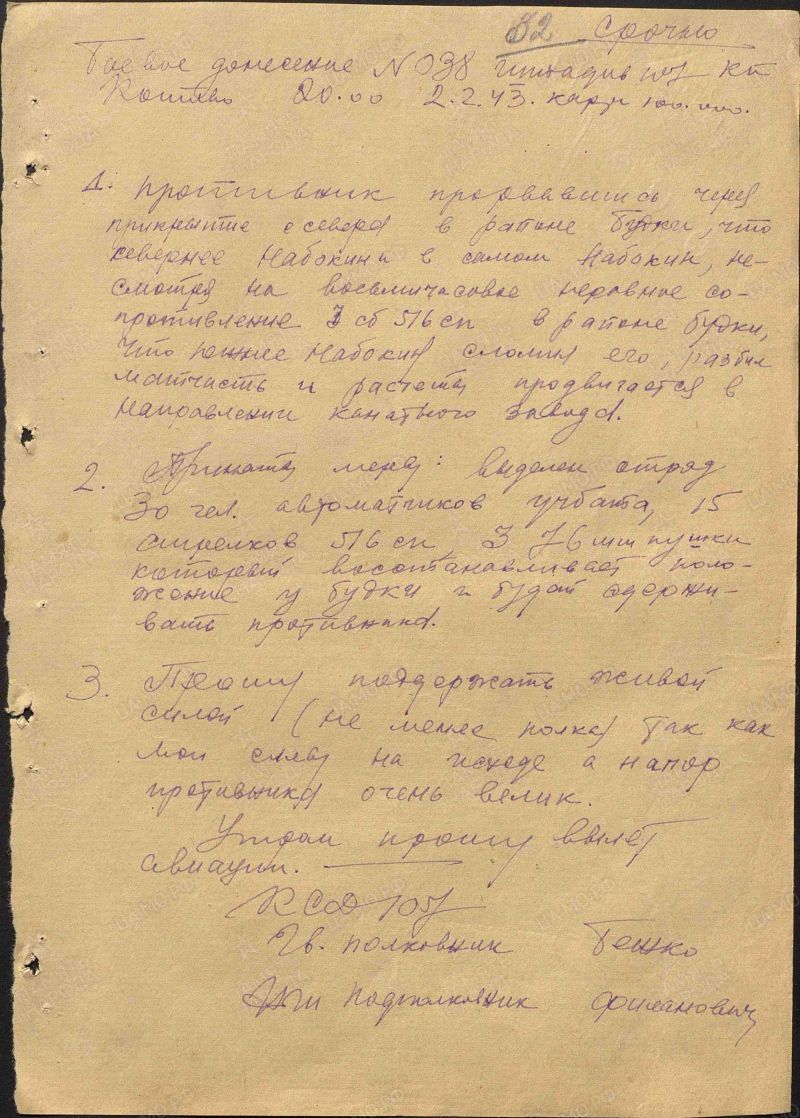 82 Срочно
Боевое донесение N 038 штадив 107 КП
20.00 2.2.43. карта 100.000.
1. Противник прорвавшись через
прикрытие с севера в районе будки, что
севернее Набокина в самом Набокин, не-
смотря на восьмичасовое неровное со-
противление 3 сб 516 сп в районе будки,
что южнее Набокин сломил его, разбил
матчасть и расчеты продвигается в
направлении канатного завода.
2. Приняты меры: выделен отряд
30 чел. автоматчиков учбата, 15
стрелков 516 сп 3 76 мм пушки
который восстанавливает поло-
жение у будки и будет сдержи-
вать противника.
3. Прошу поддержать живой
силой (не менее полка) так как
мои силы на исходе а напор
противника очень велик.
Утром прошу вылет
авиации.
КСД 107
Гв. полковник Бежко
НШ Подполковник Филанович